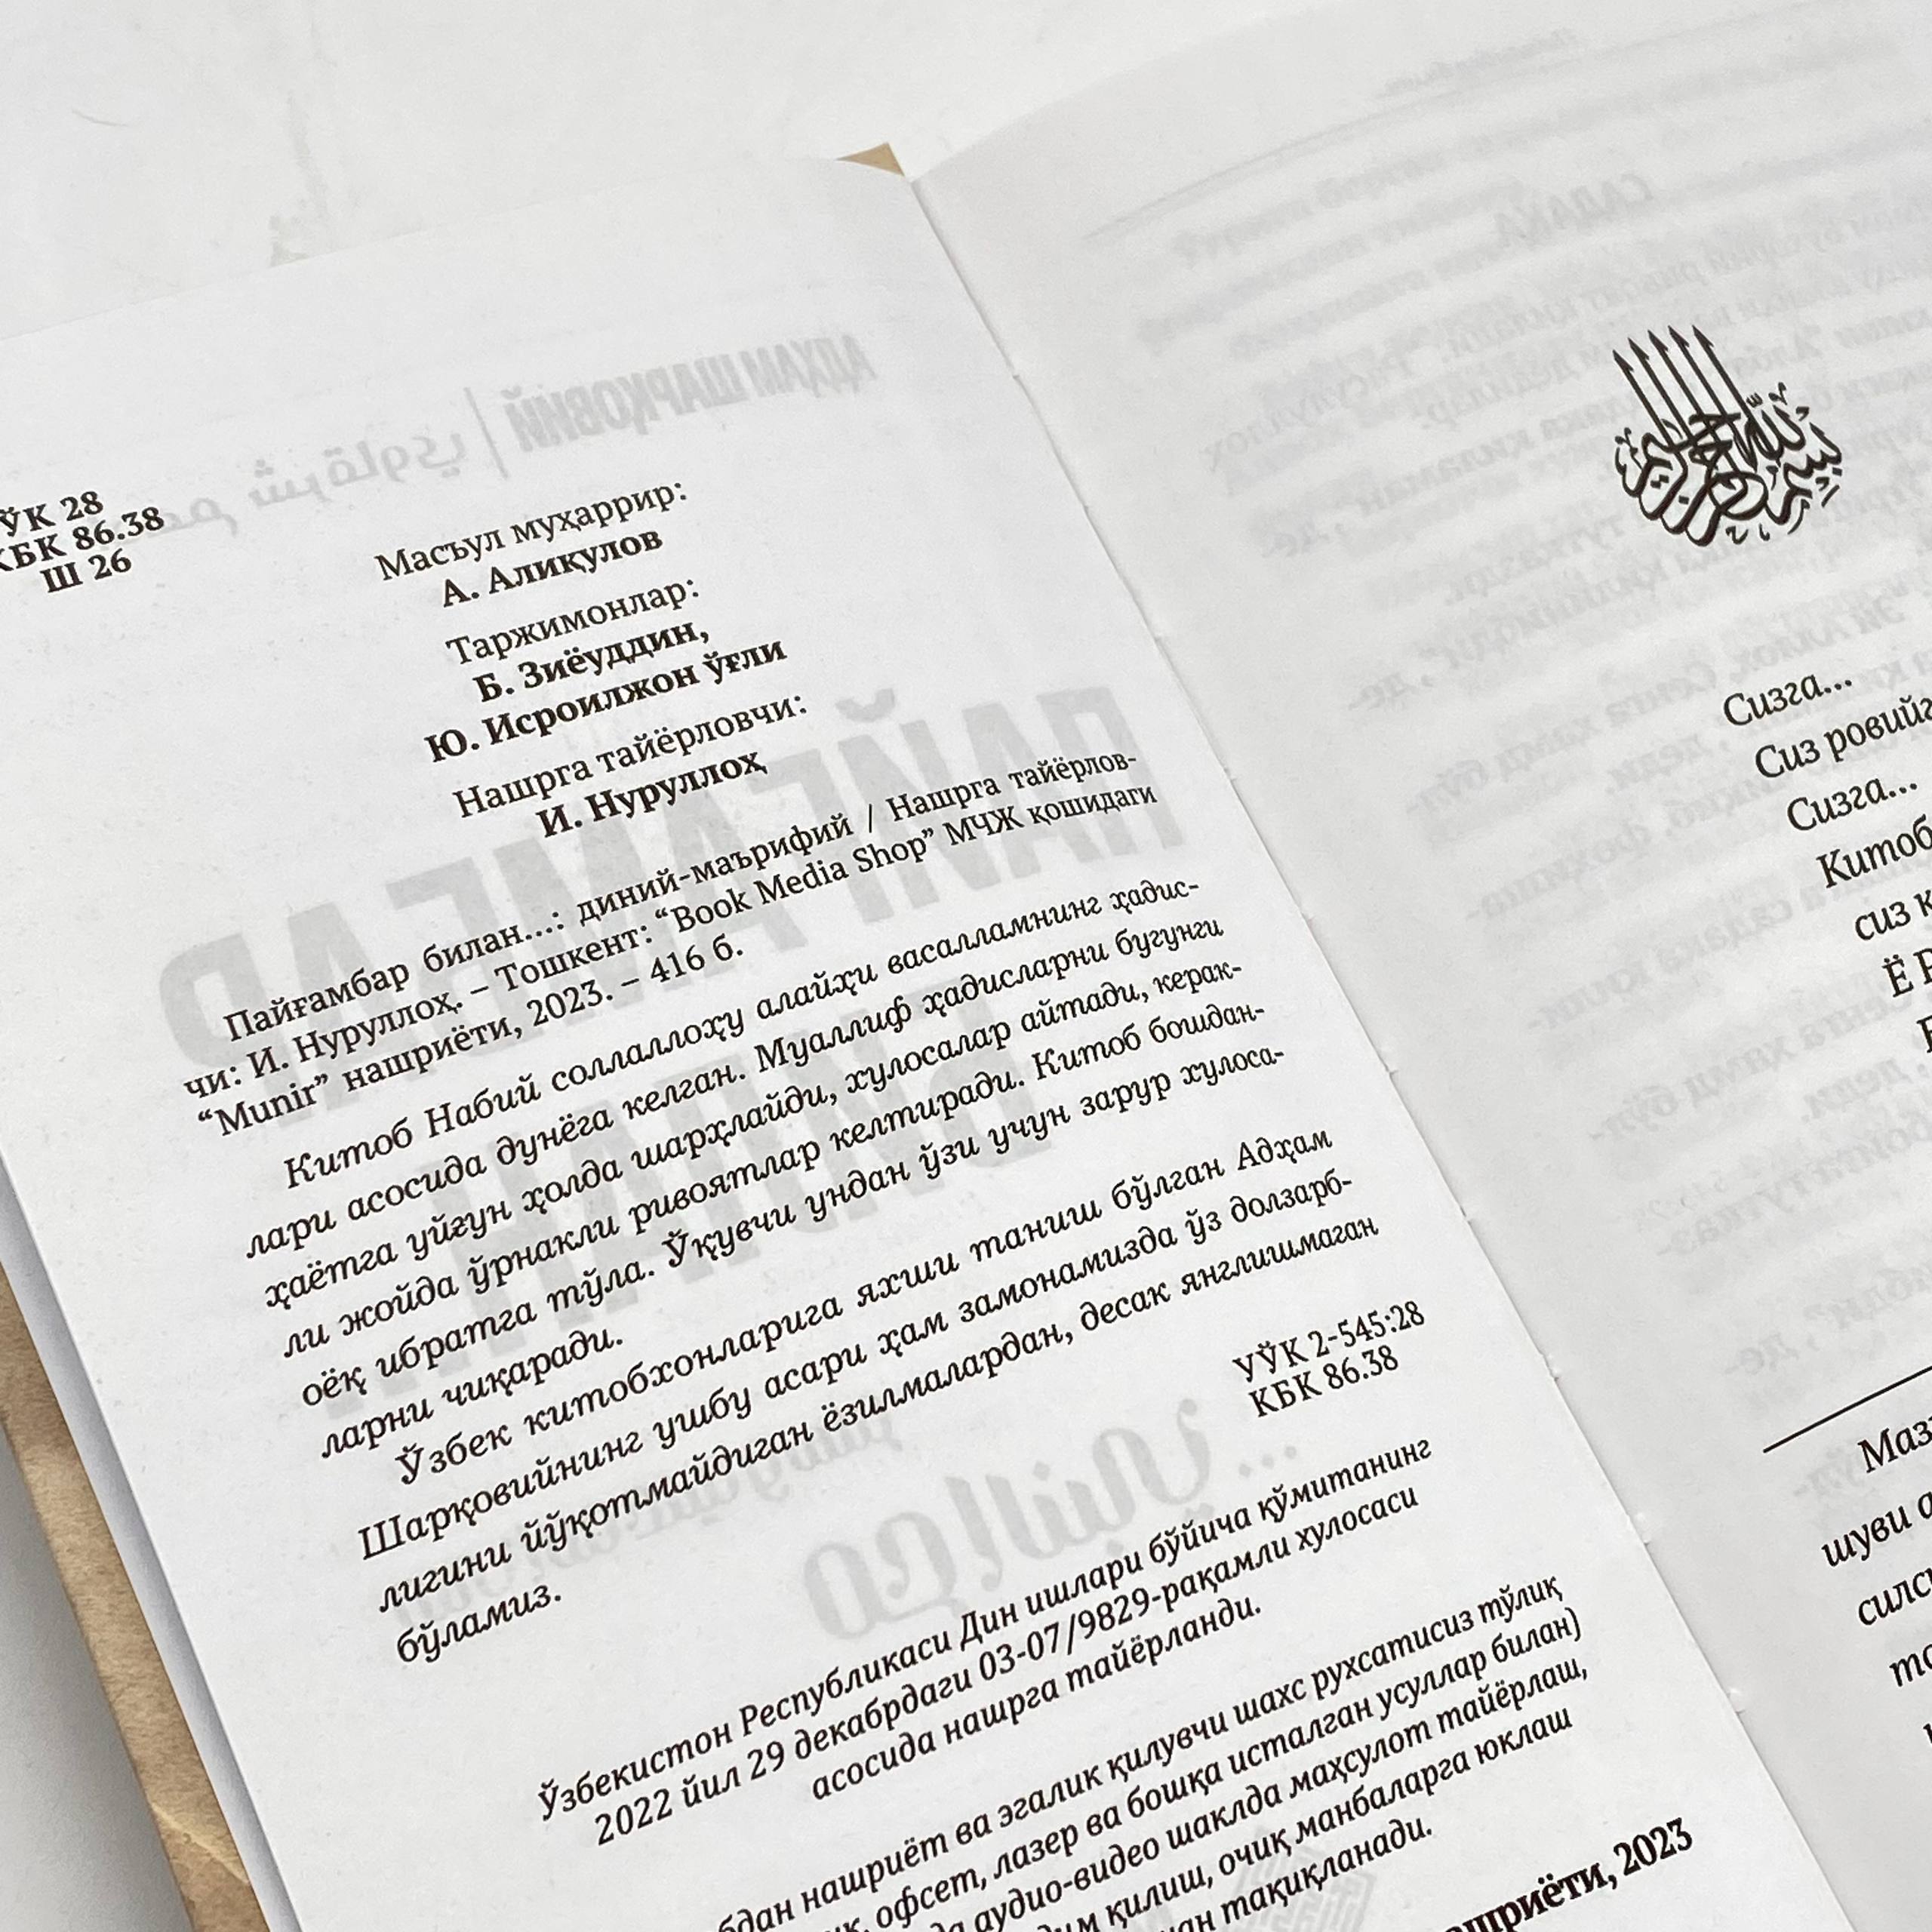 ЎК 28
КБК 86.38
Ш 26
Масъул муҳаррир:
А. Алиқулов
Таржимонлар:
Б. Зиёуддин,
Ю. Исроилжон ўғли
Нашрга тайёрловчи:
И. Нуруллоҳ
Пайғамбар билан...: диний-маърифий / Нашрга тайёрлов-
чи: И. Нуруллоҳ. – Тошкент: “Book Media Shop” МЧЖ қошидаги
“Munir” нашриёти, 2023. – 416 б.
Китоб Набий соллаллоҳу алайҳи васалламнинг ҳадис-
лари асосида дунёга келган. Муаллиф ҳадисларни бугунги
ҳаётга уйғун ҳолда шарҳлайди, хулосалар айтади, керак-
ли жойда ўрнакли ривоятлар келтиради. Китоб бошдан-
оёқ ибратга тўла. Ўқувчи ундан ўзи учун зарур хулоса-
ларни чиқаради.
Ўзбек китобхонларига яхши таниш бўлган Адҳам
Шарқовийнинг ушбу асари ҳам замонамизда ўз долзарб-
лигини йўқотмайдиган ёзилмалардан, десак янглишмаган
бўламиз.
УЎК 2-545:28
КБК 86.38
Ўзбекистон Республикаси Дин ишлари бўйича қўмитанинг
2022 йил 29 декабрдаги 03-07/9829-рақамли хулосаси
асосида нашрга тайёрланди.
нашриёт ва эгалик қилувчи шахс рухсатисиз тўлиқ
офсет, лазер ва бошқа исталган усуллар билан)
аудио-видео шаклда маҳсулот тайёрлаш,
қилиш, очиқ манбаларга юклаш
тақиқланади.
2023
بسم الله الرحمن الرحيم
Сизга...
Сиз ровийг
Сизга...
Китоб
сиз к
Ё Р
Маз
шуви а
силс